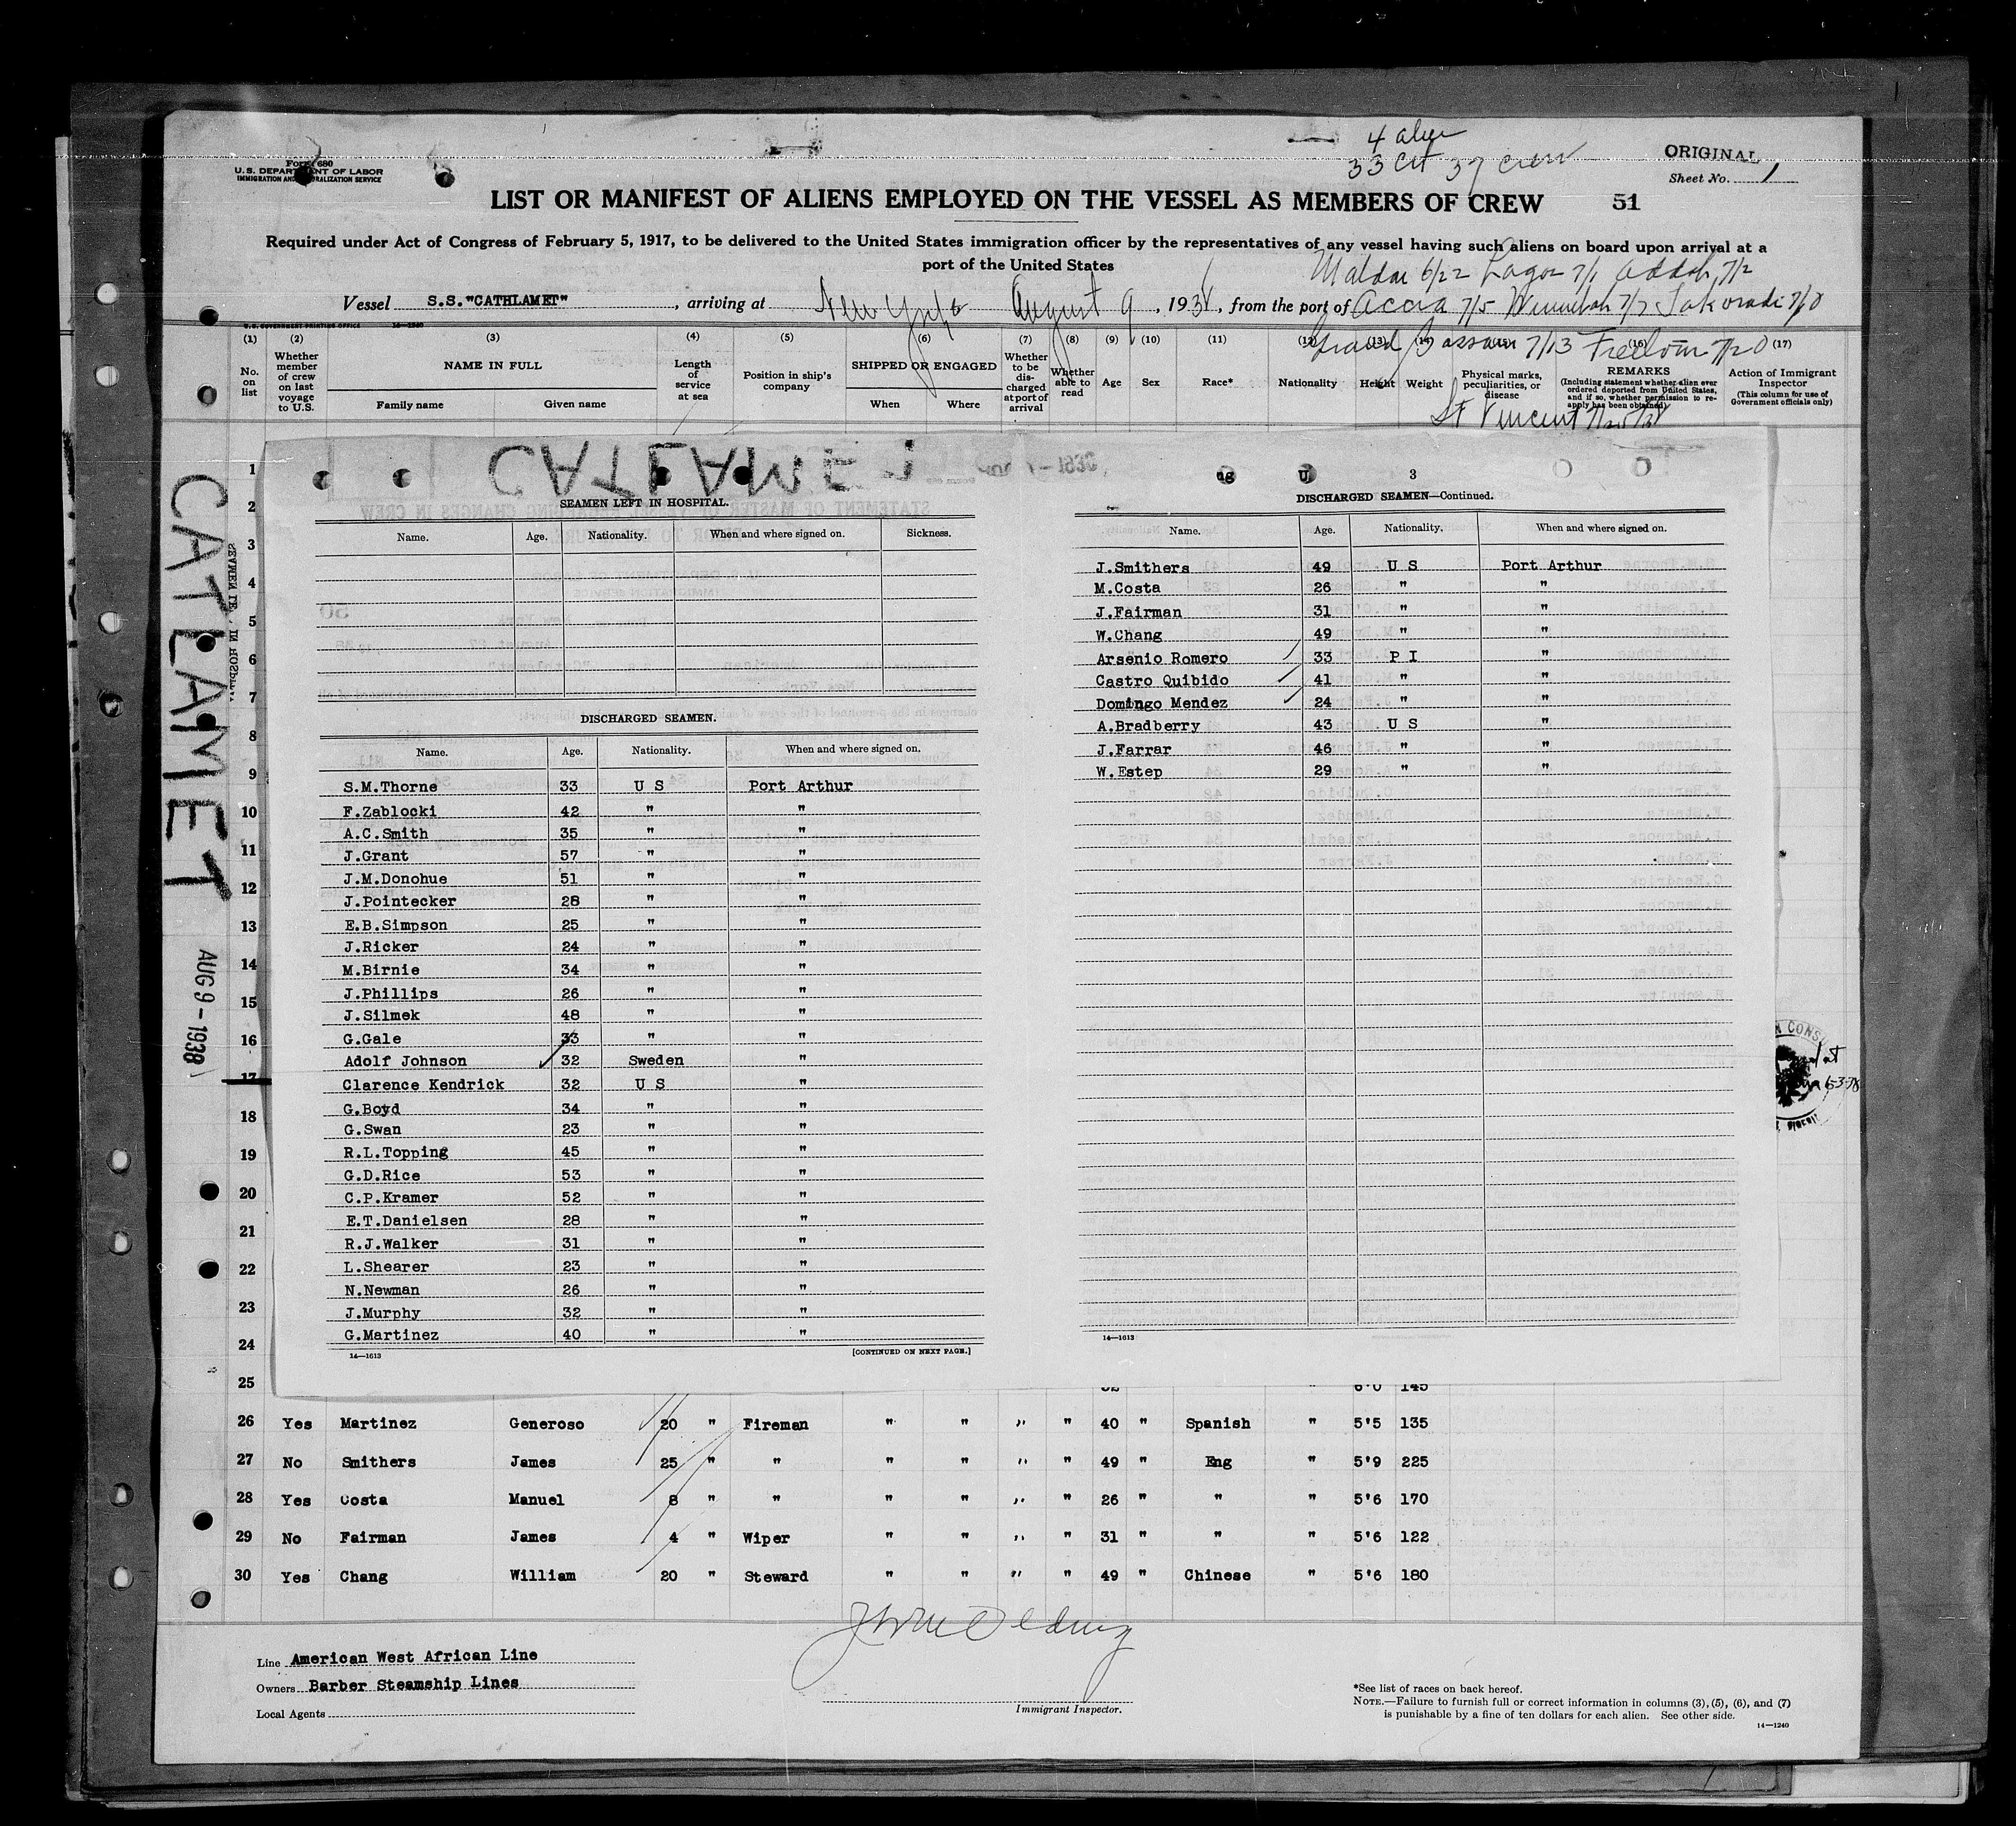 4 alien
33 Cit 37 crew
ORIGINAL
Sheet No. 1
Form 680
U.S. DEPARTMENT OF LABOR
IMMIGRATION AND NATURALIZATION SERVICE
LIST OR MANIFEST OF ALIENS EMPLOYED ON THE VESSEL AS MEMBERS OF CREW 51
Required under Act of Congress of February 5, 1917, to be delivered to the United States immigration officer by the representatives of any vessel having such aliens on board upon arrival at a
port of the United States
6/22 Lagos 7/1 Addah 7/2
Vessel S.S."CATHLAMET", arriving at New York August 9, 1938, from the port of Accra 7/5 Winnebah 7/7 Takoradi 7/8
Grand Bassam 7/13 Freetown 7/20
St Vincent
U.S. GOVERNMENT PRINTING OFFICE 14—1240
(1) (2) (3) (4) (5) (6) (7) (8) (9) (10) (11) (12) (13) (14) (16) (17)
No. on list
Whether member of crew on last voyage to U.S.
NAME IN FULL
Family name Given name
Length of service at sea
Position in ship's company
SHIPPED OR ENGAGED
When Where
Whether to be discharged at port of arrival
Whether able to read
Age Sex Race* Nationality Height Weight
Physical marks, peculiarities, or disease
REMARKS
(Including statement whether alien ever ordered deported from United States, and if so, whether permission to reapply has been obtained)
Action of Immigrant Inspector
(This column for use of Government officials only)
CATLAMET
AUG 9 - 1938
CATLAMET
SEAMEN LEFT IN HOSPITAL.
Name. Age. Nationality. When and where signed on. Sickness.
DISCHARGED SEAMEN.
Name. Age. Nationality. When and where signed on.
S.M.Thorne 33 U S Port Arthur
F.Zablocki 42 " "
A.C.Smith 35 " "
J.Grant 57 " "
J.M.Donohue 51 " "
J.Pointecker 28 " "
E.B.Simpson 25 " "
J.Ricker 24 " "
M.Birnie 34 " "
J.Phillips 26 " "
J.Silmek 48 " "
G.Gale 33 " "
Adolf Johnson 32 Sweden "
Clarence Kendrick 32 U S "
G.Boyd 34 " "
G.Swan 23 " "
R.L.Topping 45 " "
G.D.Rice 53 " "
C.P.Kramer 52 " "
E.T.Danielsen 28 " "
R.J.Walker 31 " "
L.Shearer 23 " "
N.Newman 26 " "
J.Murphy 32 " "
G.Martinez 40 " "
14—1613 [CONTINUED ON NEXT PAGE.]
3
DISCHARGED SEAMEN—Continued.
Name. Age. Nationality. When and where signed on.
J.Smithers 49 U S Port Arthur
M.Costa 26 " "
J.Fairman 31 " "
W.Chang 49 " "
Arsenio Romero 33 P I "
Castro Quibido 41 " "
Domingo Mendez 24 " "
A.Bradberry 43 U S "
J.Farrar 46 " "
W.Estep 29 " "
14—1613
1
2
3
4
5
6
7
8
9
10
11
12
13
14
15
16
17
18
19
20
21
22
23
24
25 6'0 145
26 Yes Martinez Generoso 20 " Fireman " " " " 40 " Spanish " 5'5 135
27 No Smithers James 25 " " " " " " 49 " Eng " 5'9 225
28 Yes Costa Manuel 8 " " " " " " 26 " " " 5'6 170
29 No Fairman James 4 " Wiper " " " " 31 " " " 5'6 122
30 Yes Chang William 20 " Steward " " " " 49 " Chinese " 5'6 180
Line American West African Line
Owners Barber Steamship Lines
Local Agents
Immigrant Inspector.
*See list of races on back hereof.
NOTE.—Failure to furnish full or correct information in columns (3), (5), (6), and (7)
is punishable by a fine of ten dollars for each alien. See other side.
14—1240